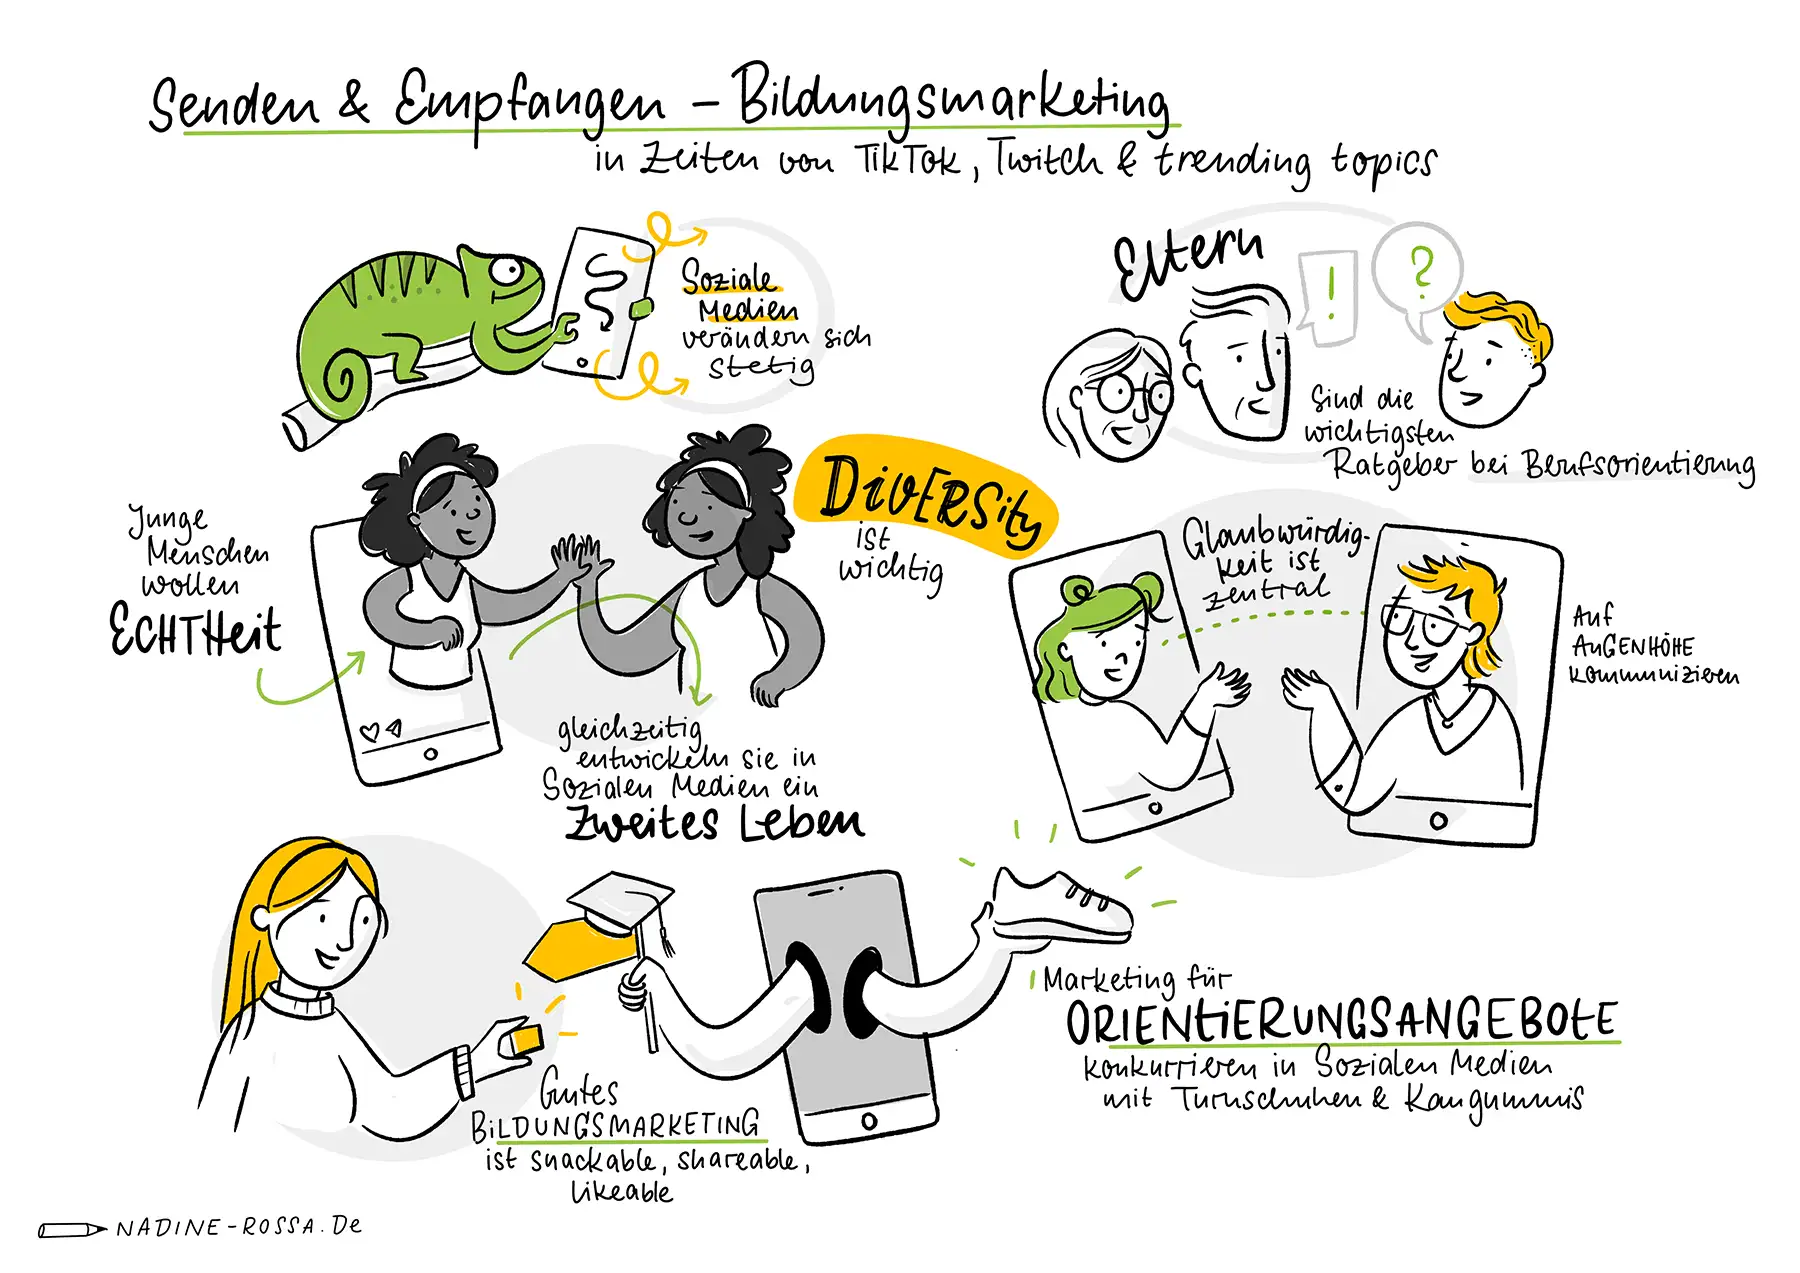 Senden & Empfangen – Bildungsmarketing
in Zeiten von TikTok, Twitch & trending topics
Soziale
Medien
verändern sich
stetig
Eltern
!
?
sind die
wichtigsten
Ratgeber bei Berufsorientierung
Junge
Menschen
wollen
ECHTHeit
DiVERSity
ist
wichtig
Glaubwürdig-
keit ist
zentral
Auf
AuGENHÖHE
kommunizieren
gleichzeitig
entwickeln sie in
Sozialen Medien ein
Zweites Leben
Gutes
BiLDUNGSMARKETING
ist snackable, shareable,
likeable
Marketing für
ORIENTiERUNGSANGEBOtE
konkurrieren in Sozialen Medien
mit Turnschuhen & Kaugummis
NADINE-ROSSA.De